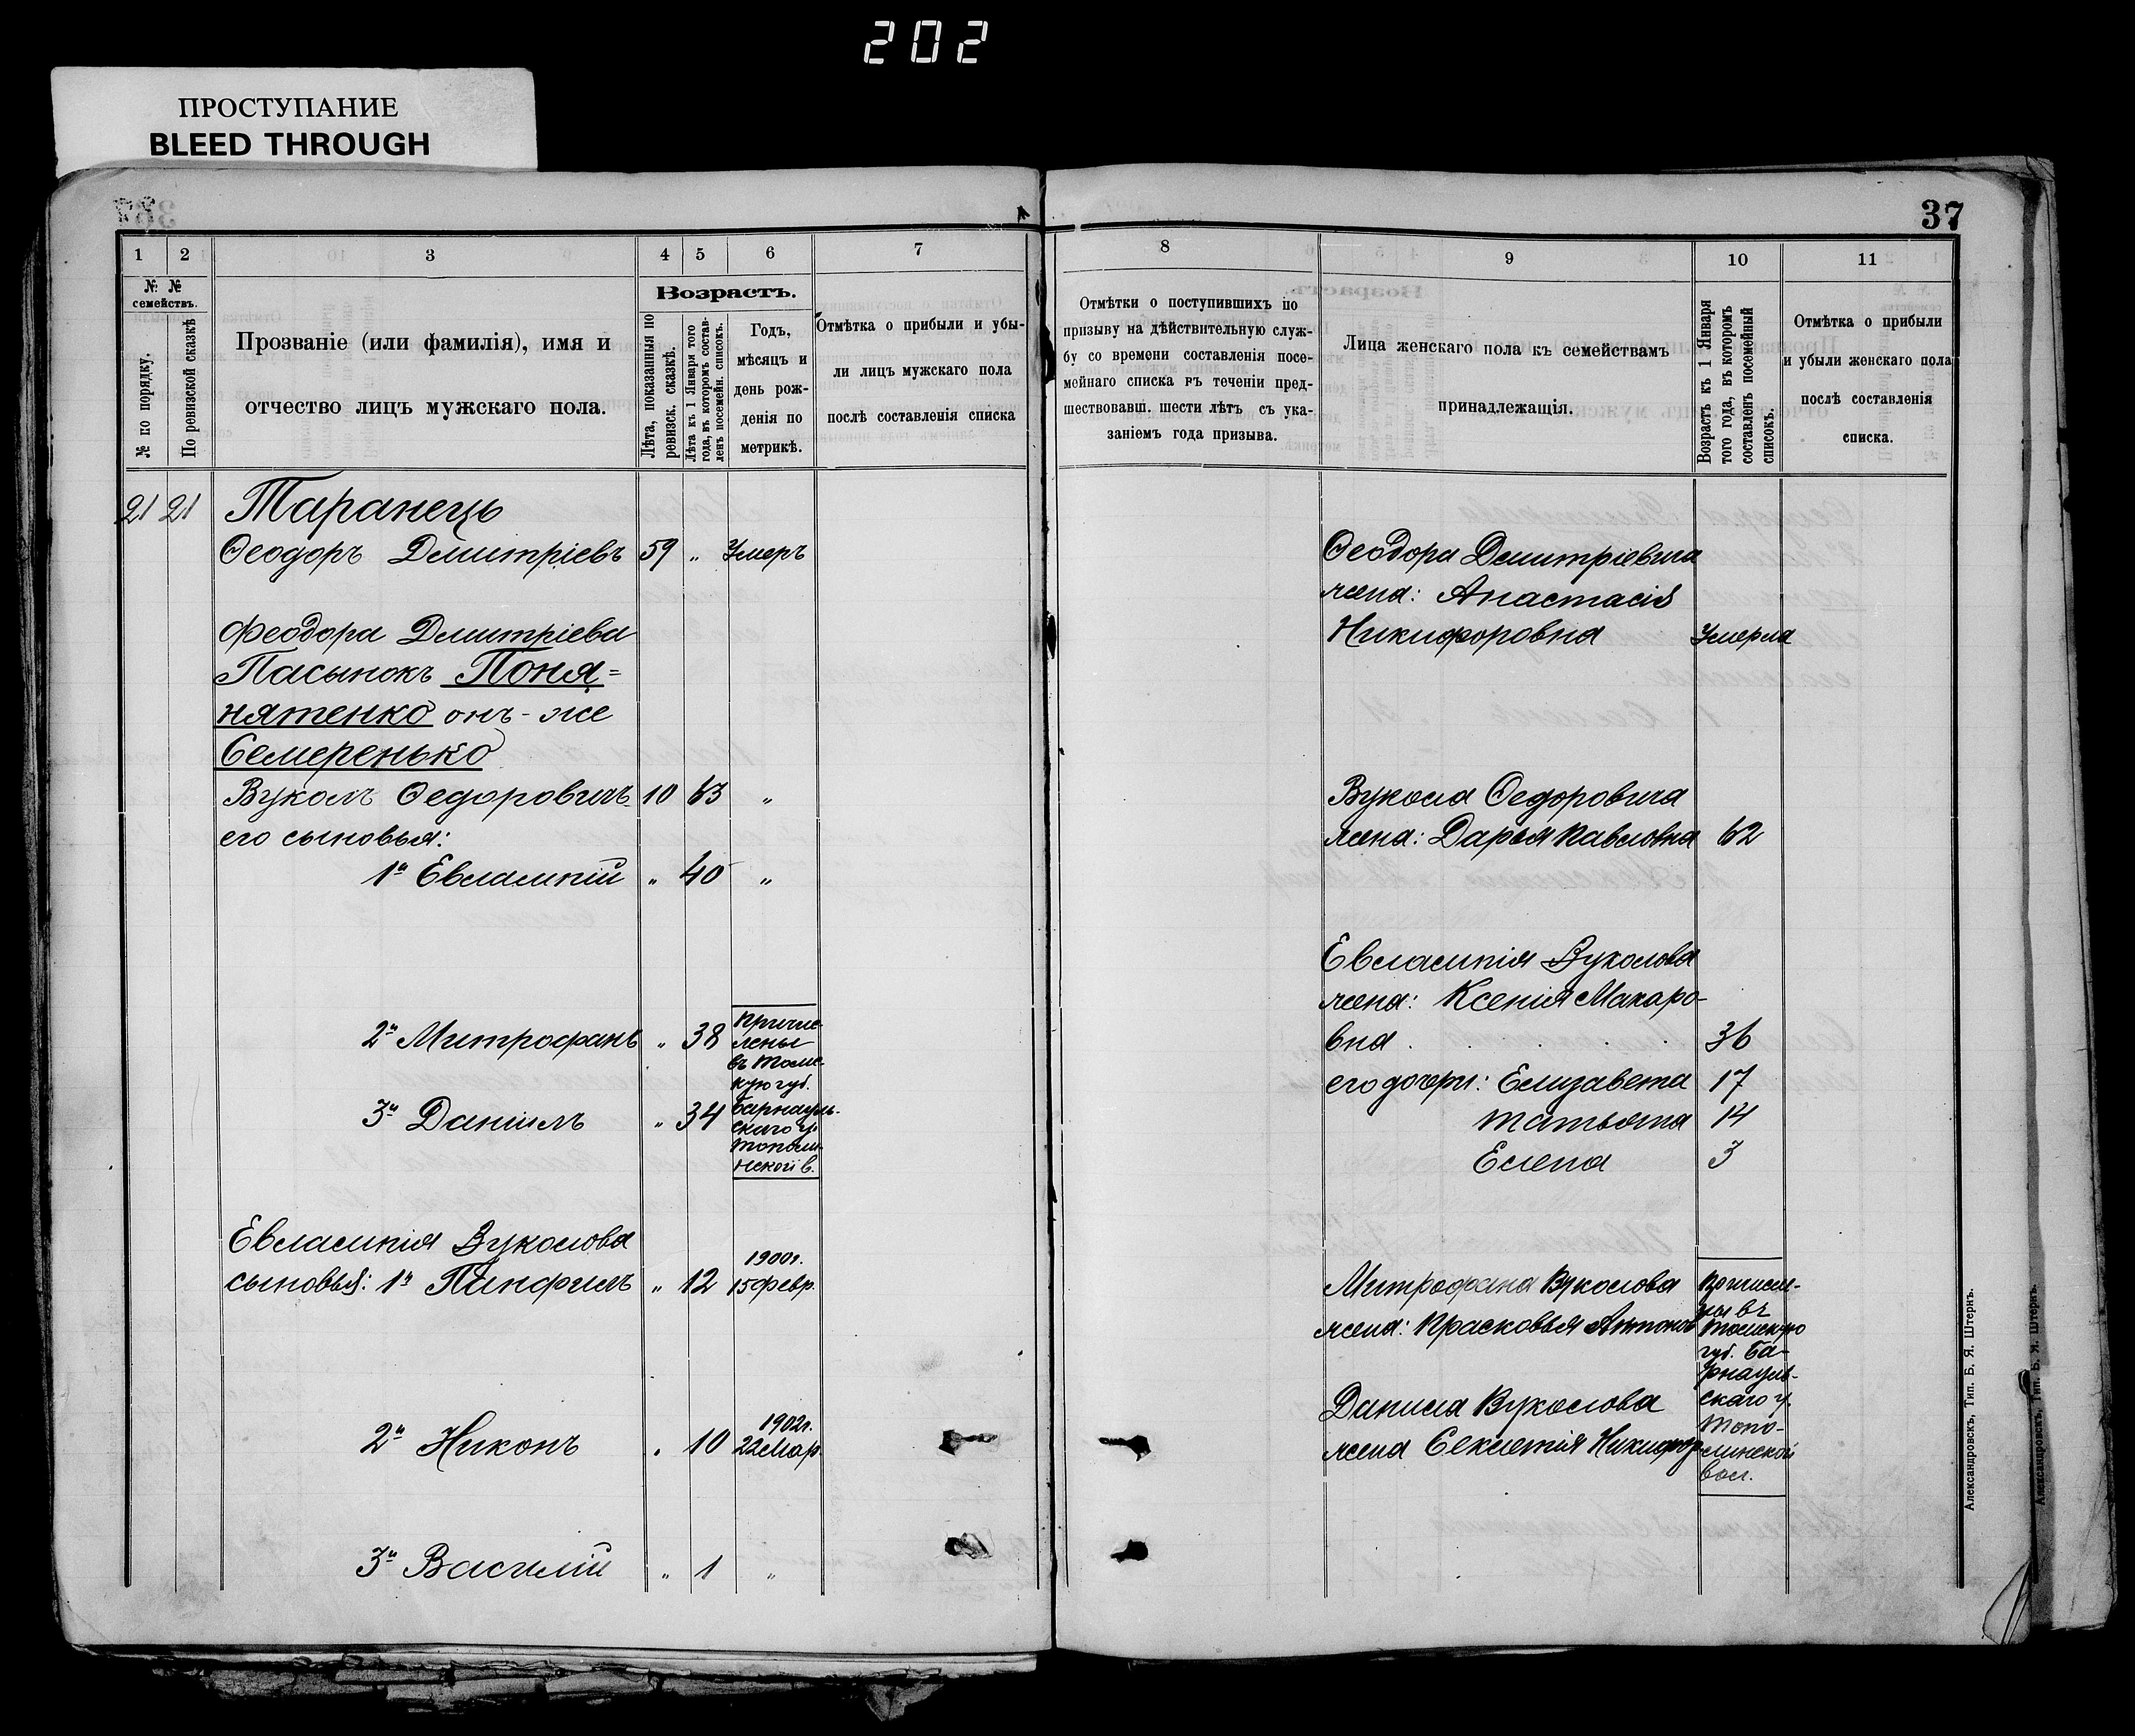 202
ПРОСТУПАНИЕ
BLEED THROUGH
37
1 2 3 4 5 6 7
№ № семействъ.
№ по порядку.
По ревизской сказкѣ
Прозваніе (или фамилія), имя и
отчество лицъ мужскаго пола.
Возрастъ.
Лѣта, показанныя по
ревизск. сказкѣ.
Лѣта къ 1 Января того
года, въ которомъ состав-
ленъ посемейн. списокъ.
Годъ,
мѣсяцъ и
день рож-
денія по
метрикѣ.
Отмѣтка о прибыли и убы-
ли лицъ мужскаго пола
послѣ составленія списка
21 21 Таранець
Ѳеодоръ Дмитріевъ 59 „ Умеръ
Феодора Дмитріева
Пасынокъ Поня=
нятенко онъ-же
Семеренько
Вуколъ Ѳедоровичъ 10 63 „
его сыновья:
1й Евлампій „ 40 „
2й Митрофанъ „ 38
3й Даніилъ „ 34
Причис-
лены
въ Томс-
кую губ.
Барнауль-
скаго у.
Тополи-
нской в.
Евлампія Вуколова
сыновья: 1й Панфилъ „ 12 1900г.
15 февр.
2й Никонъ „ 10 1902г.
22 Мар
3й Василій „ 1 „
8 9 10 11
Отмѣтки о поступившихъ по
призыву на дѣйствительную служ-
бу со времени составленія посе-
мейнаго списка въ теченіи пред-
шествовавш. шести лѣтъ съ ука-
заніемъ года призыва.
Лица женскаго пола къ семействамъ
принадлежащія.
Возрастъ къ 1 Января
того года, въ которомъ
составленъ посемейный
списокъ.
Отмѣтка о прибыли
и убыли женскаго пола
послѣ составленія
списка.
Ѳеодора Дмитріевича
жена: Анастасія
Никифоровна Умерла
Вукола Ѳедоровича
жена: Дарья Павловна 62
Евлампія Вуколова
жена: Ксенія Макаро-
вна . . . . . 36
его дочери: Елизавета 17
Татьяна 14
Елена 3
Митрофана Вуколова
жена: Прасковья Антонов
Данила Вуколова
жена Секлетія Никифор
Причисле-
ны въ
Томскую
губ. Ба-
рнауль-
скаго у.
Топо-
линской
вол.
Александровскъ, Тип. Б. Я. Штернъ.
Александровскъ, Тип. Б. Я. Штернъ.